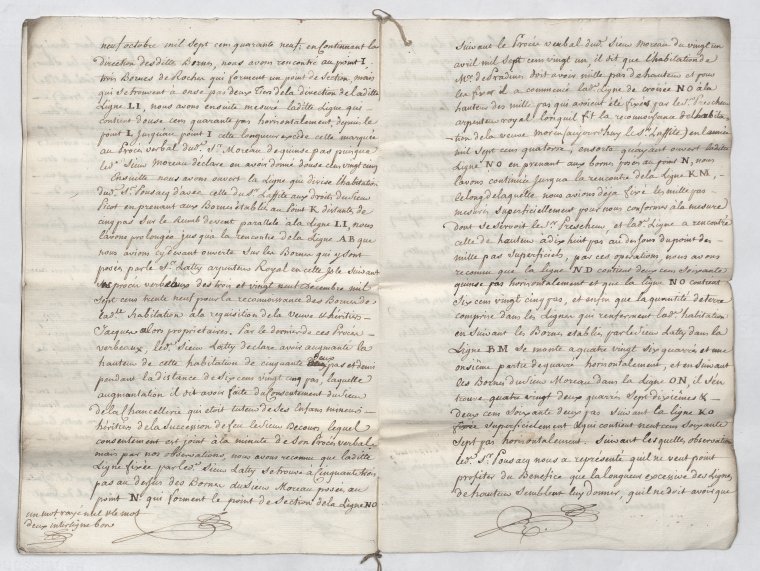 neuf octobre mil sept cens quarante neuf, en Continuant la
direction desditte Bornes, nous avons rencontré au point I
trois Bornes de Rocher qui forment un point de Section, mais
qui se trouvent à onse pas deux Tiers de la direction de laditte
Ligne LI, nous avons ensuite mesuré laditte Ligne qui
contient douse cens quarante pas horisontalement, depuis le
point L jusqu'au point I cette longueur excede cette marquée
au Procès verbal dud. Sr. Moreau de quinse pas puisque
led. Sieur Moreau declare en avoir donné douse cens vingt cinq
Ensuitte nous avons ouvert la Ligne qui divise l'habitation
dud. Sr. Pousacq d'avec celle dud. Laffite aux droits du Sieur
Picot en prenant aux Bornes établie au Point K distante de
cinq pas sur le Rumb de vent paralele à la Ligne LI, nous
l'avons prolongée jusqu'a la rencontre de la Ligne AB que
nous avions cy devant ouverte sur les Bornes qui y sont
posées par le Sr. Latty arpenteur Royal en cette Isle suivant
ses procès verbeaux des trois et vingt neuf Decembre mil
Sept cens trente neuf pour la reconnoissance des Bornes de
lad.te habitation à la requisition de la veuve et heritiers
Jacquin alors proprietaires. Par le dernier de ces Procès
verbeaux, led. Sieur Latty declare avoir augmenté la
hauteur de cette habitation de cinquante deux pas et demis
pendant la distance de Six cens vingt cinq pas, laquelle
augmantation il dit avoir faite du Consentement du Sieur
de la Chancellerie qui etoit tuteur de ses Enfans mineurs
héritiers de la Succession de feu le Sieur Decours, lequel
consentement est joint à la minute de Son Procès verbal
mais par nos observations, nous avons reconnu que laditte
Ligne fixée par led. Sieur Latty se trouve à Cinquante trois
pas au dessus des Bornes du Sieur Moreau posées au
point N. qui forment le point de Section de la Ligne NO
un mot rayé nul et le mot
deux interligne bon
Suivant le Procès verbal dud. Sieur Moreau du vingt un
avril mil Sept cens vingt un, il dit que l'habitation de
Mr. de Pradines doit avoir mille pas de hauteur et pour
les fixer il a commencé lad. Ligne de croisée NO à la
hauteur des mille pas qui avoient été fixés par le Sr. Frescheux
arpenteur royal, lorsquil fit la reconnoissance de l'habita-
tion de la veuve morin aujourd'huy le Sr. Laffite, en l'année
mil Sept cens quatorse, ensorte quayant ouvert laditte
Ligne NO en prenant aux bornes posées au point N, nous
l'avons continuée jusqu'a la rencontre de la Ligne KM,
le long de laquelle nous avions déjà fixé les mille pas
mesurés Superficiellement pour nous conformer à la mesure
dont se servoit le Sr. Frescheux, et lad. Ligne a rencontré
celle de hauteur à dix huit pas au dessous du point des
mille pas Superficiels, par ces operations, nous avons
reconnu que la ligne ND contient deux cens Soixante
quinse pas horisontalement et que la ligne NO contient
Six cens vingt cinq pas, et enfin que la quantité de terre
comprise dans les Lignes qui renferment lad. habitation
en suivant les Bornes établies par le Sieur Latty dans la
Ligne BM se monte a quatre vingt six quarrés et une
onsieme partie de quarré horisontalement, et en suivant
les Bornes du Sieur Moreau dans la Ligne ON, il s'en
trouve quatre vingt deux quarrés Sept dixiemes &
Deux cens Soixante deux pas suivant la ligne KO
fixée Superficielement qui contient neuf cens Soixante
Sept pas horisontalement. Suivant lesquelles observations
led. Sr. Pousacq nous a représenté quil ne veut point
profiter du Benefice que la longueur excessive des Lignes
de hauteur semblent luy donner, quil ne doit avoir que